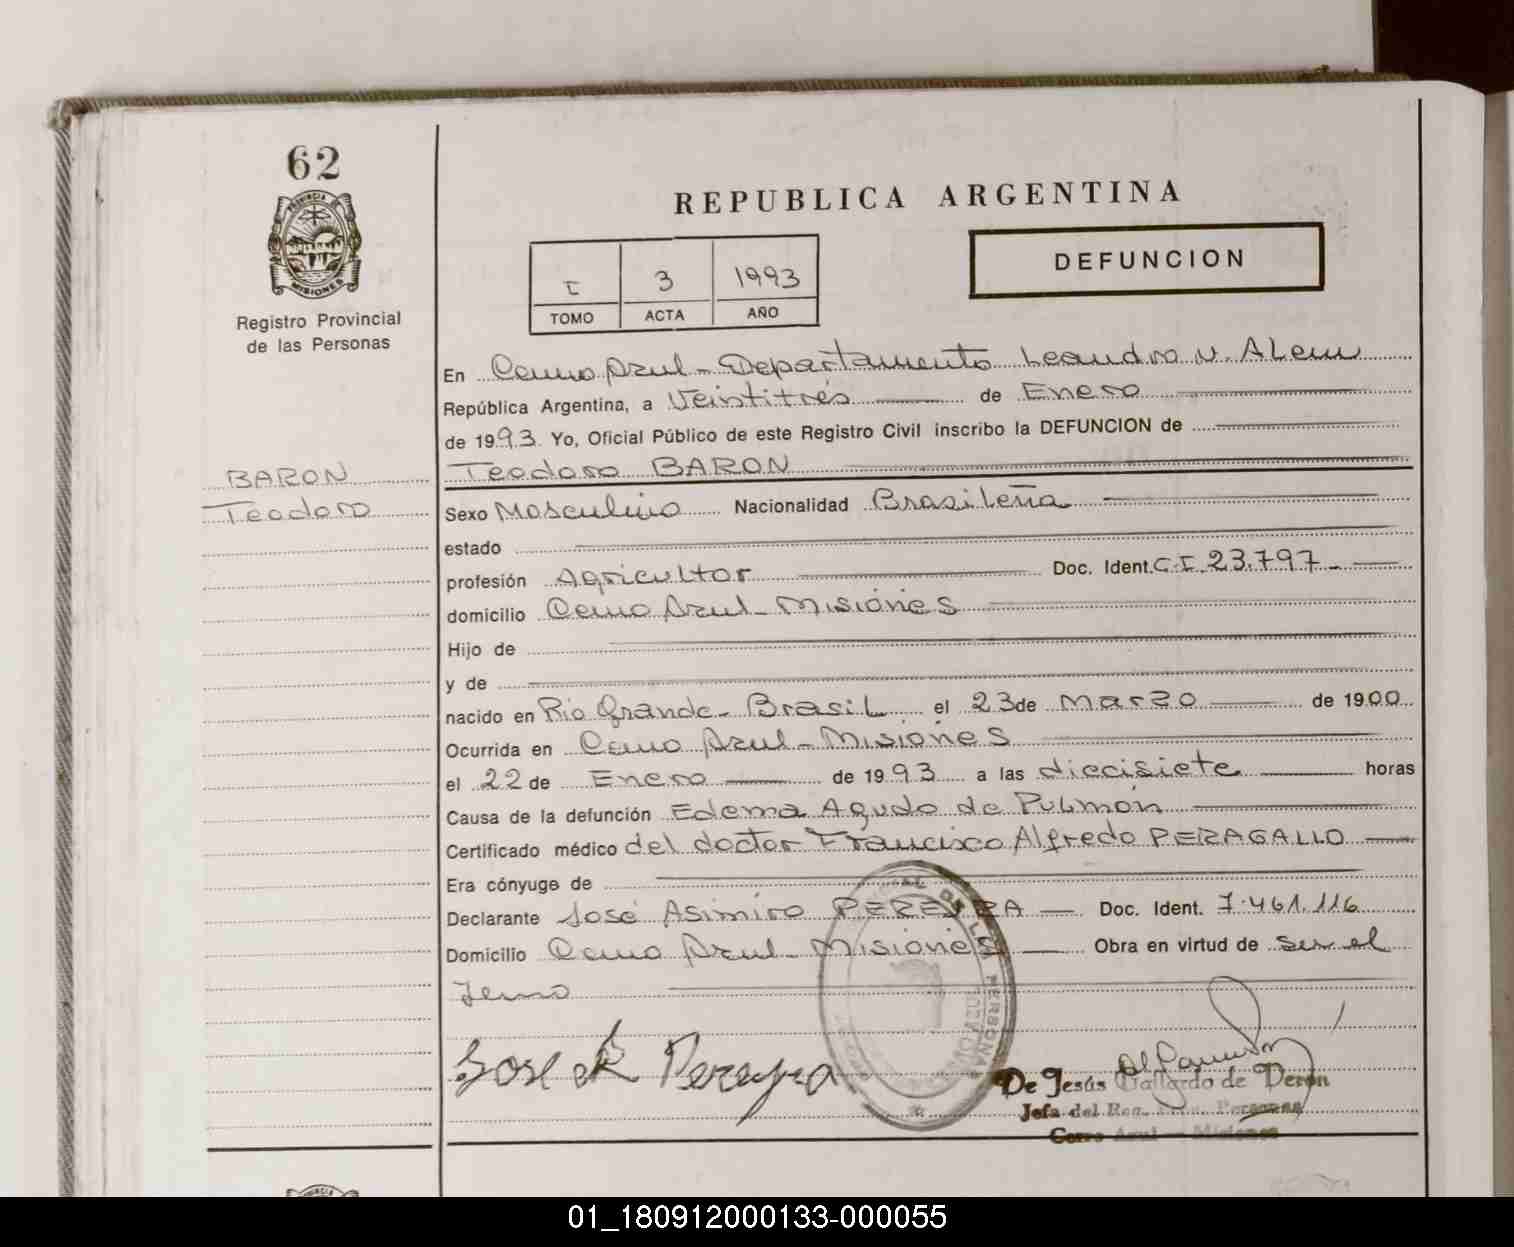 62
PROVINCIA DE
MISIONES
Registro Provincial
de las Personas
REPUBLICA ARGENTINA
I 3 1993
TOMO ACTA AÑO
DEFUNCION
En Cerro Azul - Departamento Leandro N. Alem
República Argentina, a Veintitrés de Enero
de 1993. Yo, Oficial Público de este Registro Civil inscribo la DEFUNCION de
BARON
Teodoro
Teodoro BARON
Sexo Masculino Nacionalidad Brasileña
estado
profesión Agricultor Doc. Ident. C.I. 23.797 -
domicilio Cerro Azul - Misiones
Hijo de
y de
nacido en Rio Grande - Brasil el 23 de Marzo de 1900
Ocurrida en Cerro Azul - Misiones
el 22 de Enero de 1993 a las diecisiete horas
Causa de la defunción Edema Agudo de Pulmón
Certificado médico del doctor Francisco Alfredo PERAGALLO
Era cónyuge de
Declarante José Asimiro PEREYRA Doc. Ident. 7.461.116
Domicilio Cerro Azul - Misiones Obra en virtud de ser el
Yerno
Jose A Pereyra
De Jesús Gallardo de Deron
Jefa del Reg. Personas
Cerro Azul - Misiones
01_180912000133-000055